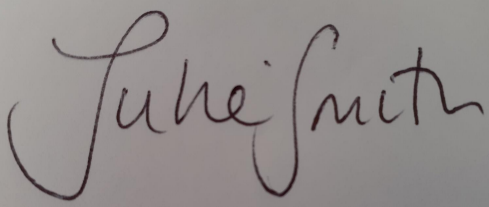 Julie Smith